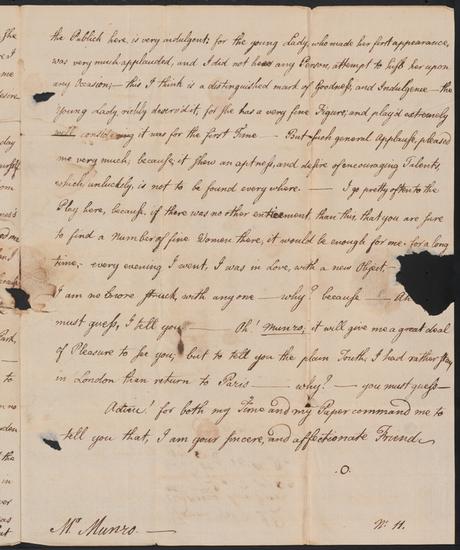 the Publick here, is very indulgent; for the young Lady, who made her first appearance,
was very much applauded, and I did not hear any Person, attempt to hiss her upon
any Occasion, — this I think is a distinguished mark of Goodness, and Indulgence — the
Young Lady richly deserv'd it, for she has a very fine Figure; and play'd extremely
well considering it was for the first Time — But such general Applause, pleased
me very much; because, it shew an aptness, and desire of encouraging Talents,
which, unluckely, is not to be found every where. — I go pretty often to the
Play here, because, if there was no other enticement, than this, that you are sure
to find a Number of fine Women there, it would be enough for me — for a long
time, — every evening I went, I was in Love, with a new Object, —
I am no more struck, with any one — why? because — Ah
must guess, I tell you — Oh! Munro, it will give me a great deal
of Pleasure to see you, but to tell you the plain Truth, I had rather stay
in London than return to Paris — why? — you must guess —
Adieu! for both my Time and my Paper command me to
tell you that, I am your sincere, and affectionate Friend
.O.
Mr. Munro. —
No. 11.